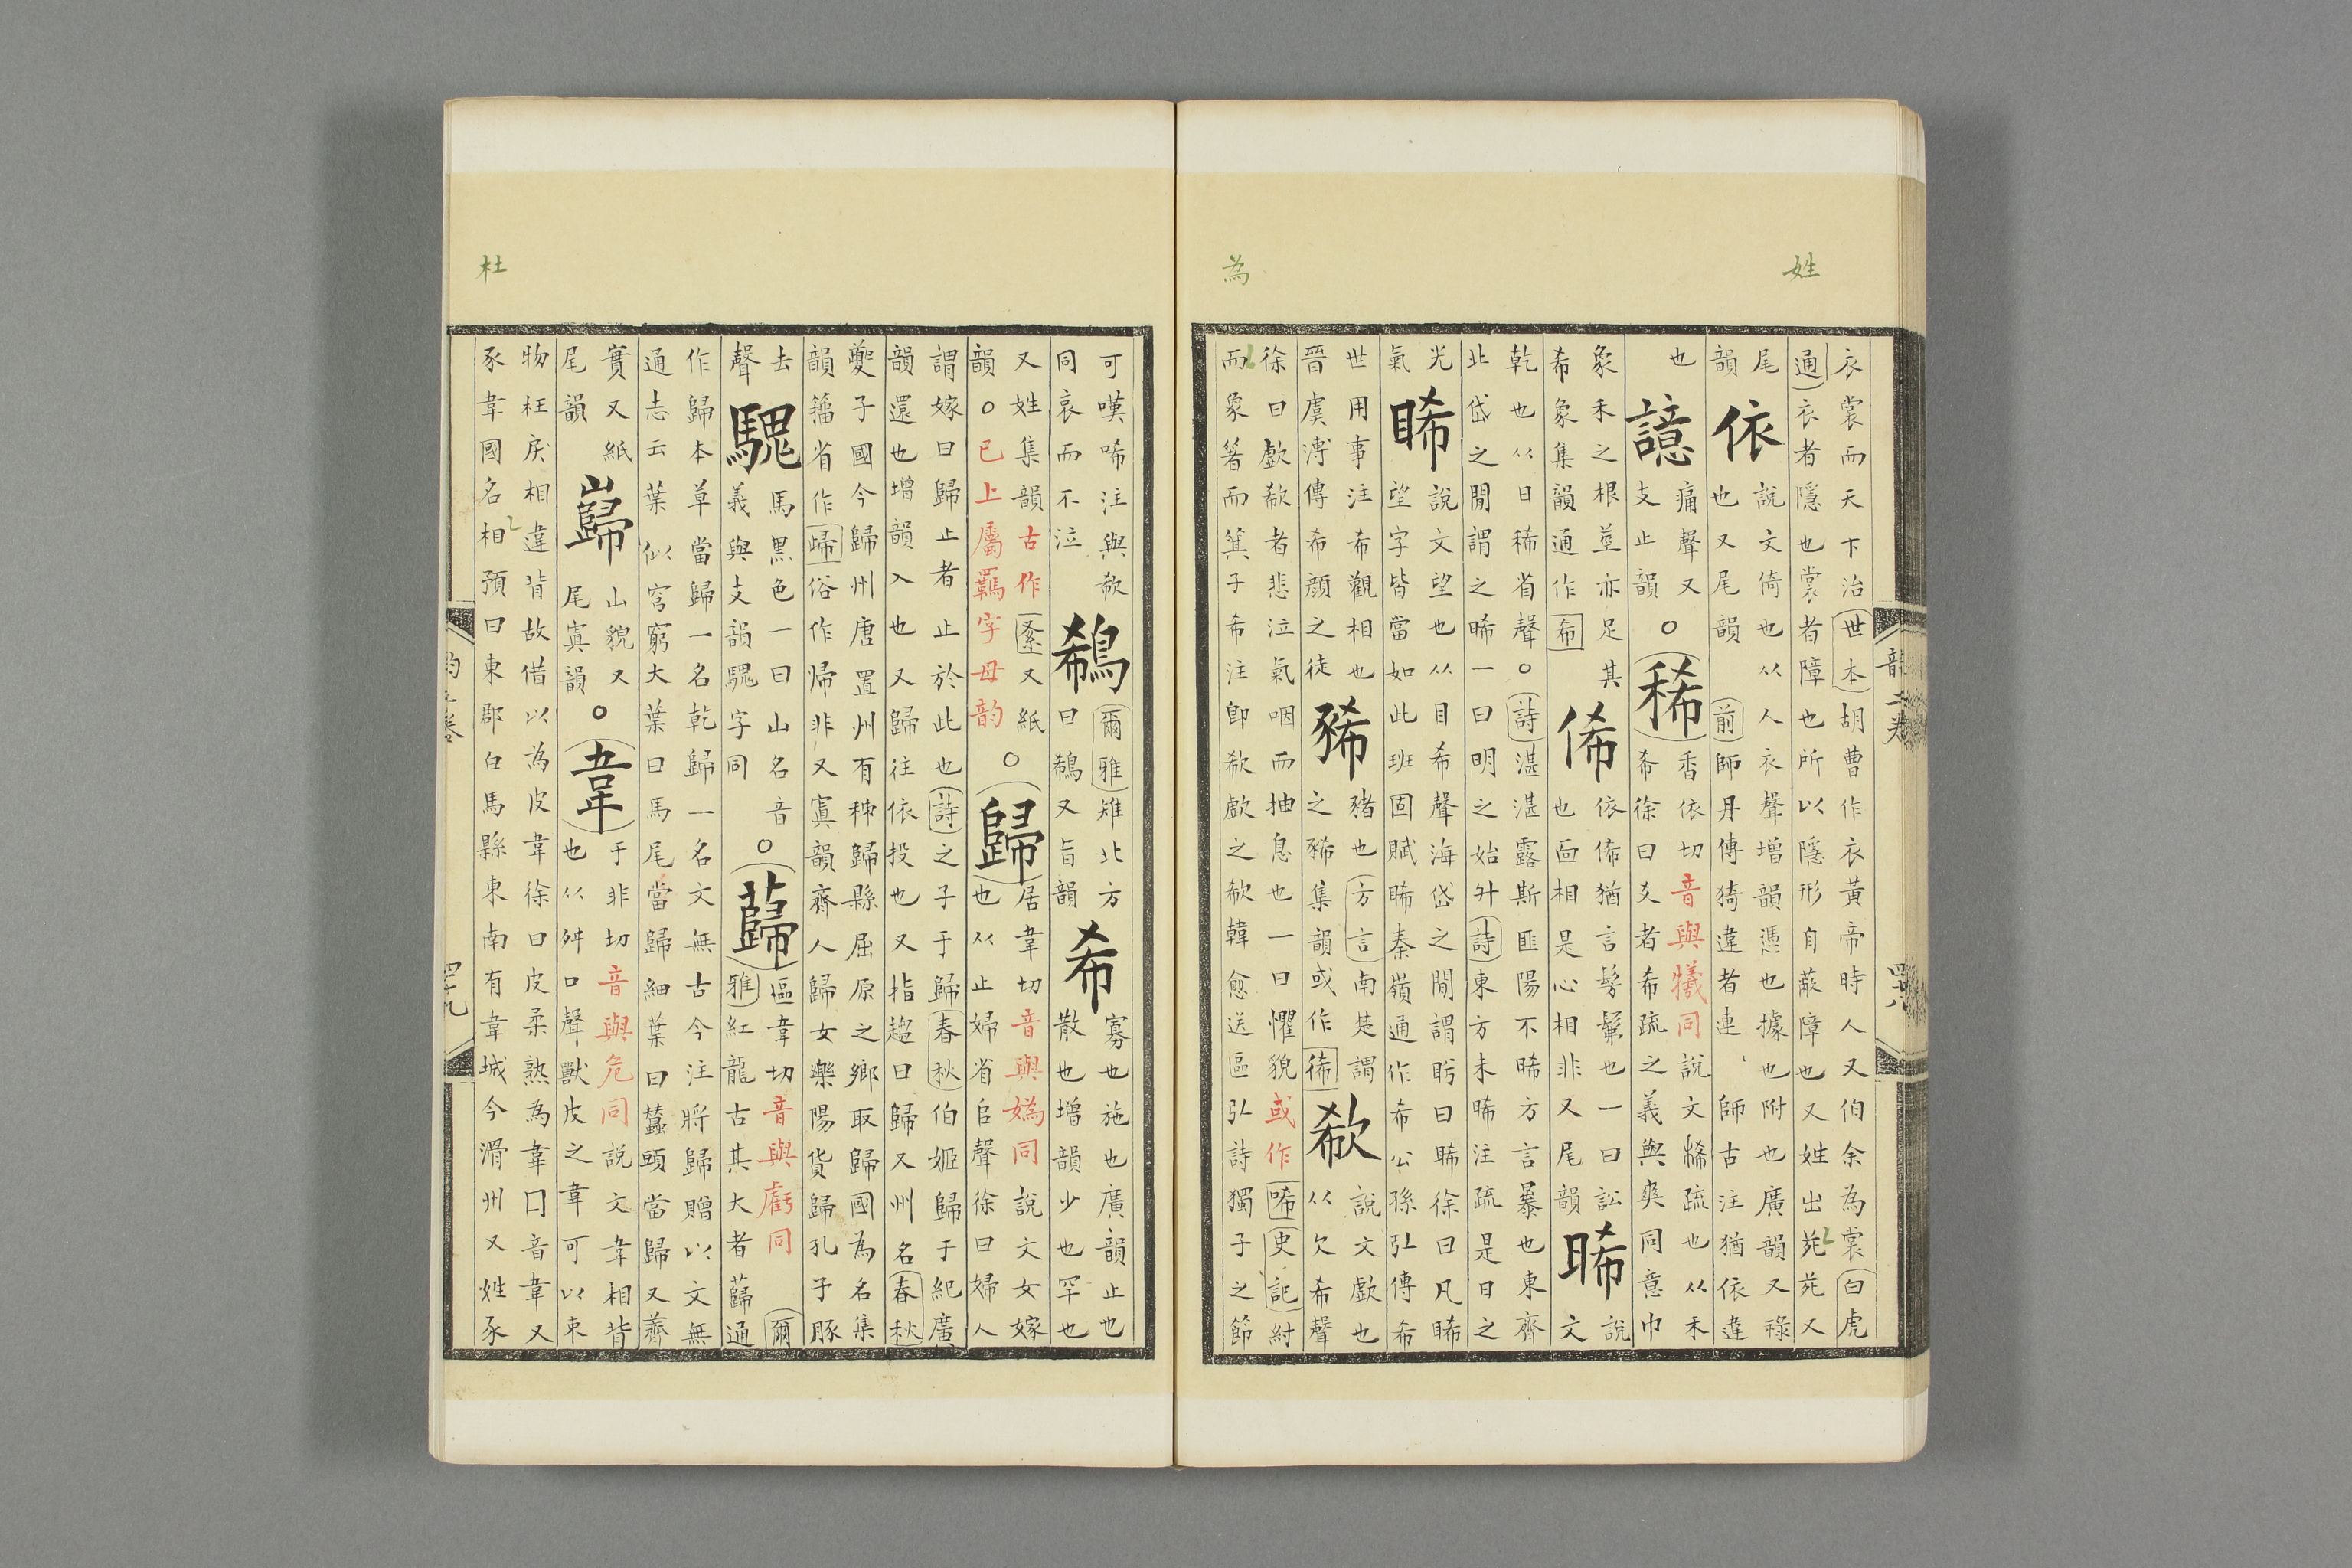 姓
為
衣裳而天下治世本胡曹作衣黃帝時人又伯余為裳白虎
通衣者隱也裳者障也所以隱形自蔽障也又姓出苑苑又
尾
韻
依
說文倚也从人衣聲增韻憑也據也附也廣韻又祿
也又尾韻前師丹傳猗違者連、師古注猶依違
也
譩
痛聲又
支止韻
○
稀
香依切音與犧同說文稀疏也从禾
希徐曰爻者希疏之義與爽同意巾
象禾之根莖亦足其
希象集韻通作希
俙
依俙猶言髣髴也一曰訟
也面相是心相非又尾韻
晞
說
文
乾也从日稀省聲○詩湛湛露斯匪陽不晞方言暴也東齊
北岱之間謂之晞一曰明之始升詩東方未晞注疏是日之
光
氣
睎
說文望也从目希聲海岱之間謂眄曰睎徐曰凡睎
望字皆當如此班固賦睎秦嶺通作希公孫弘傳希
世用事注希觀相也
晉虞溥傳希顏之徒
豨
豬也方言南楚謂
之豨集韻或作狶
欷
說文歔也
从欠希聲
徐曰歔欷者悲泣氣咽而抽息也一曰懼貌或作唏史記紂
而象箸而箕子希注卽欷歔之欷韓愈送區弘詩獨子之節
韻二卷
四十八
杜
可嘆唏注與欷
同哀而不泣
鵗
爾雅雉北方
曰鵗又旨韻
希
寡也施也廣韻止也
散也增韻少也罕也
又姓集韻古作又紙
韻○已上屬羈字母韵
○
歸
居韋切音與媯同說文女嫁
也从止婦省𠂤聲徐曰婦人
謂嫁曰歸止者止於此也詩之子于歸春秋伯姬歸于紀廣
韻還也增韻入也又歸往依投也又指趨曰歸又州名春秋
夔子國今歸州唐置州有秭歸縣屈原之鄉取歸國為名集
韻籀省作㱕俗作帰非又寘韻齊人歸女樂陽貨歸孔子豚
去
聲
騩
馬黑色一曰山名音
義與支韻騩字同
○
蘬
區韋切音與虧同爾
雅紅龍古其大者蘬通
作歸本草當歸一名乾歸一名文無古今注將歸贈以文無
通志云葉似芎窮大葉曰馬尾當歸細葉曰蠶頭當歸又薺
實又紙
尾韻
巋
山貌又
尾寘韻
○
韋
于非切音與危同說文韋相背
也从舛口聲獸皮之韋可以束
物枉戾相違背故借以為皮韋徐曰皮柔熟為韋囗音韋又
豕韋國名相預曰東郡白馬縣東南有韋城今滑州又姓豕